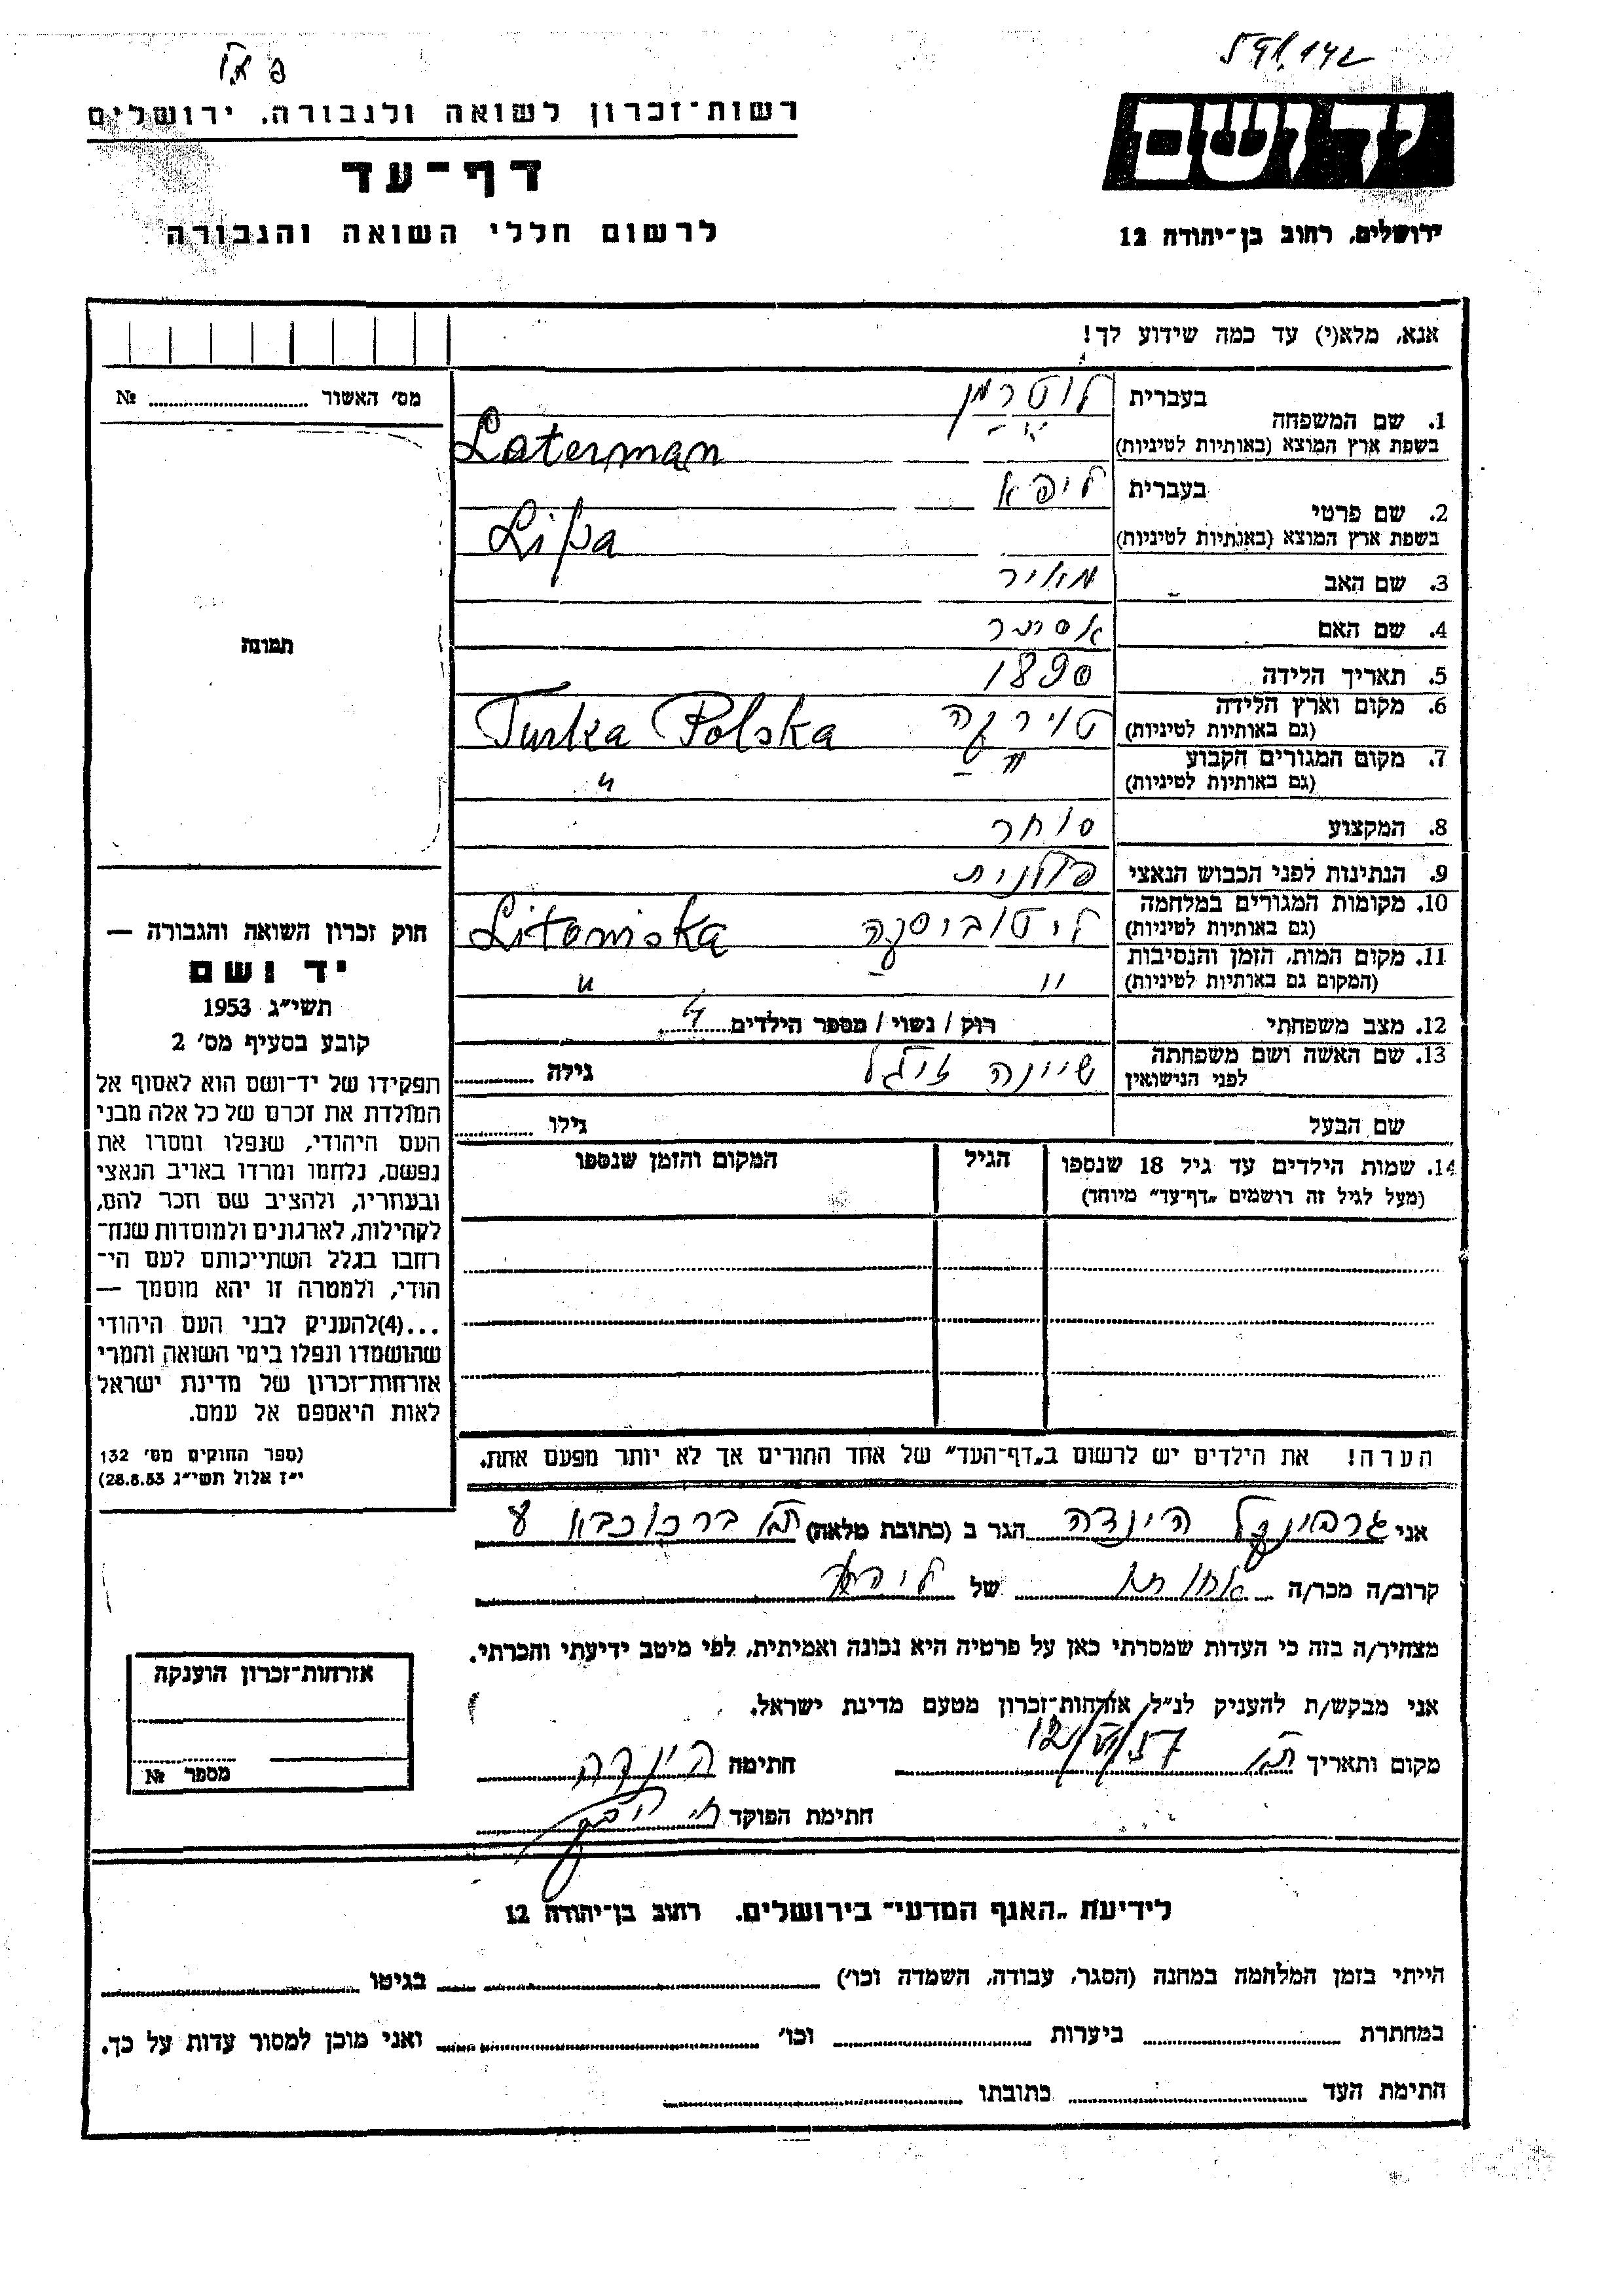 רשות־זכרון לשואה ולגבורה, ירושלים
דף־עד
לרשום חללי השואה והגבורה
יד ושם
ירושלים, רחוב בן־יהודה 12
אנא, מלא(י) עד כמה שידוע לך!
מס׳ האשור № 
תמונה
1. שם המשפחה
בעברית לוטרמן
בשפת ארץ המוצא (באותיות לטיניות) Laterman
2. שם פרטי
בעברית ליפא
בשפת ארץ המוצא (באותיות לטיניות) Lipa
3. שם האב מאיר
4. שם האם אסתר
5. תאריך הלידה 1890
6. מקום וארץ הלידה טורקה Turka Polska
(גם באותיות לטיניות)
7. מקום המגורים הקבוע " "
(גם באותיות לטיניות)
8. המקצוע סוחר
9. הנתינות לפני הכבוש הנאצי פולנית
10. מקומות המגורים במלחמה ליטוביסקה Litowiska
(גם באותיות לטיניות)
11. מקום המות, הזמן והנסיבות " "
(המקום גם באותיות לטיניות)
12. מצב משפחתי רוק / נשוי / מספר הילדים 4
13. שם האשה ושם משפחתה שיינה זיגל גילה
לפני הנישואין
שם הבעל גילו
14. שמות הילדים עד גיל 18 שנספו הגיל המקום והזמן שנספו
(מעל לגיל זה רושמים „דף־עד״ מיוחד)
הערה! את הילדים יש לרשום ב„דף־העד״ של אחד ההורים אך לא יותר מפעם אחת.
חוק זכרון השואה והגבורה —
יד ושם
תשי״ג 1953
קובע בסעיף מס׳ 2
תפקידו של יד־ושם הוא לאסוף אל
המולדת את זכרם של כל אלה מבני
העם היהודי, שנפלו ומסרו את
נפשם, נלחמו ומרדו באויב הנאצי
ובעוזריו, ולהציב שם וזכר להם,
לקהילות, לארגונים ולמוסדות שנח־
רבו בגלל השתייכותם לעם הי־
הודי, ולמטרה זו יהא מוסמך —
...(4)להעניק לבני העם היהודי
שהושמדו ונפלו בימי השואה והמרי
אזרחות־זכרון של מדינת ישראל
לאות היאספם אל עמם.
(ספר החוקים מס׳ 132
י״ז אלול תשי״ג 28.8.53)
אני גרפונקל הינדה הגר ב (כתובת מלאה) ת״א ברכוכבא
קרוב/ה מכר/ה אחותו של ליפא
מצהיר/ה בזה כי העדות שמסרתי כאן על פרטיה היא נכונה ואמיתית, לפי מיטב ידיעתי והכרתי.
אני מבקש/ת להעניק לנ״ל, אזרחות־זכרון מטעם מדינת ישראל.
מקום ותאריך ת״א חתימה הינדה
חתימת הפוקד
אזרחות־זכרון הוענקה
מספר №
לידיעת „האגף המדעי״ בירושלים. רחוב בן־יהודה 12
הייתי בזמן המלחמה במחנה (הסגר, עבודה, השמדה וכו׳) בגיטו
במחתרת ביערות וכו׳ ואני מוכן למסור עדות על כך.
חתימת העד כתובתו